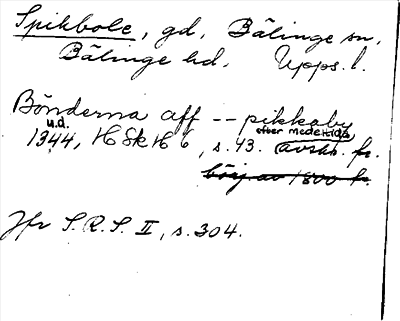 Spikbole, gd, Bälinge sn,
Bälinge hd, Upps. l.
Bönderna aff -- pikkaby
u.d. efter medeltida
1344, HSkH 6, s. 43. avskr. fr.
börj av 1800 t.
Jfr S.R.S. II, s. 304.